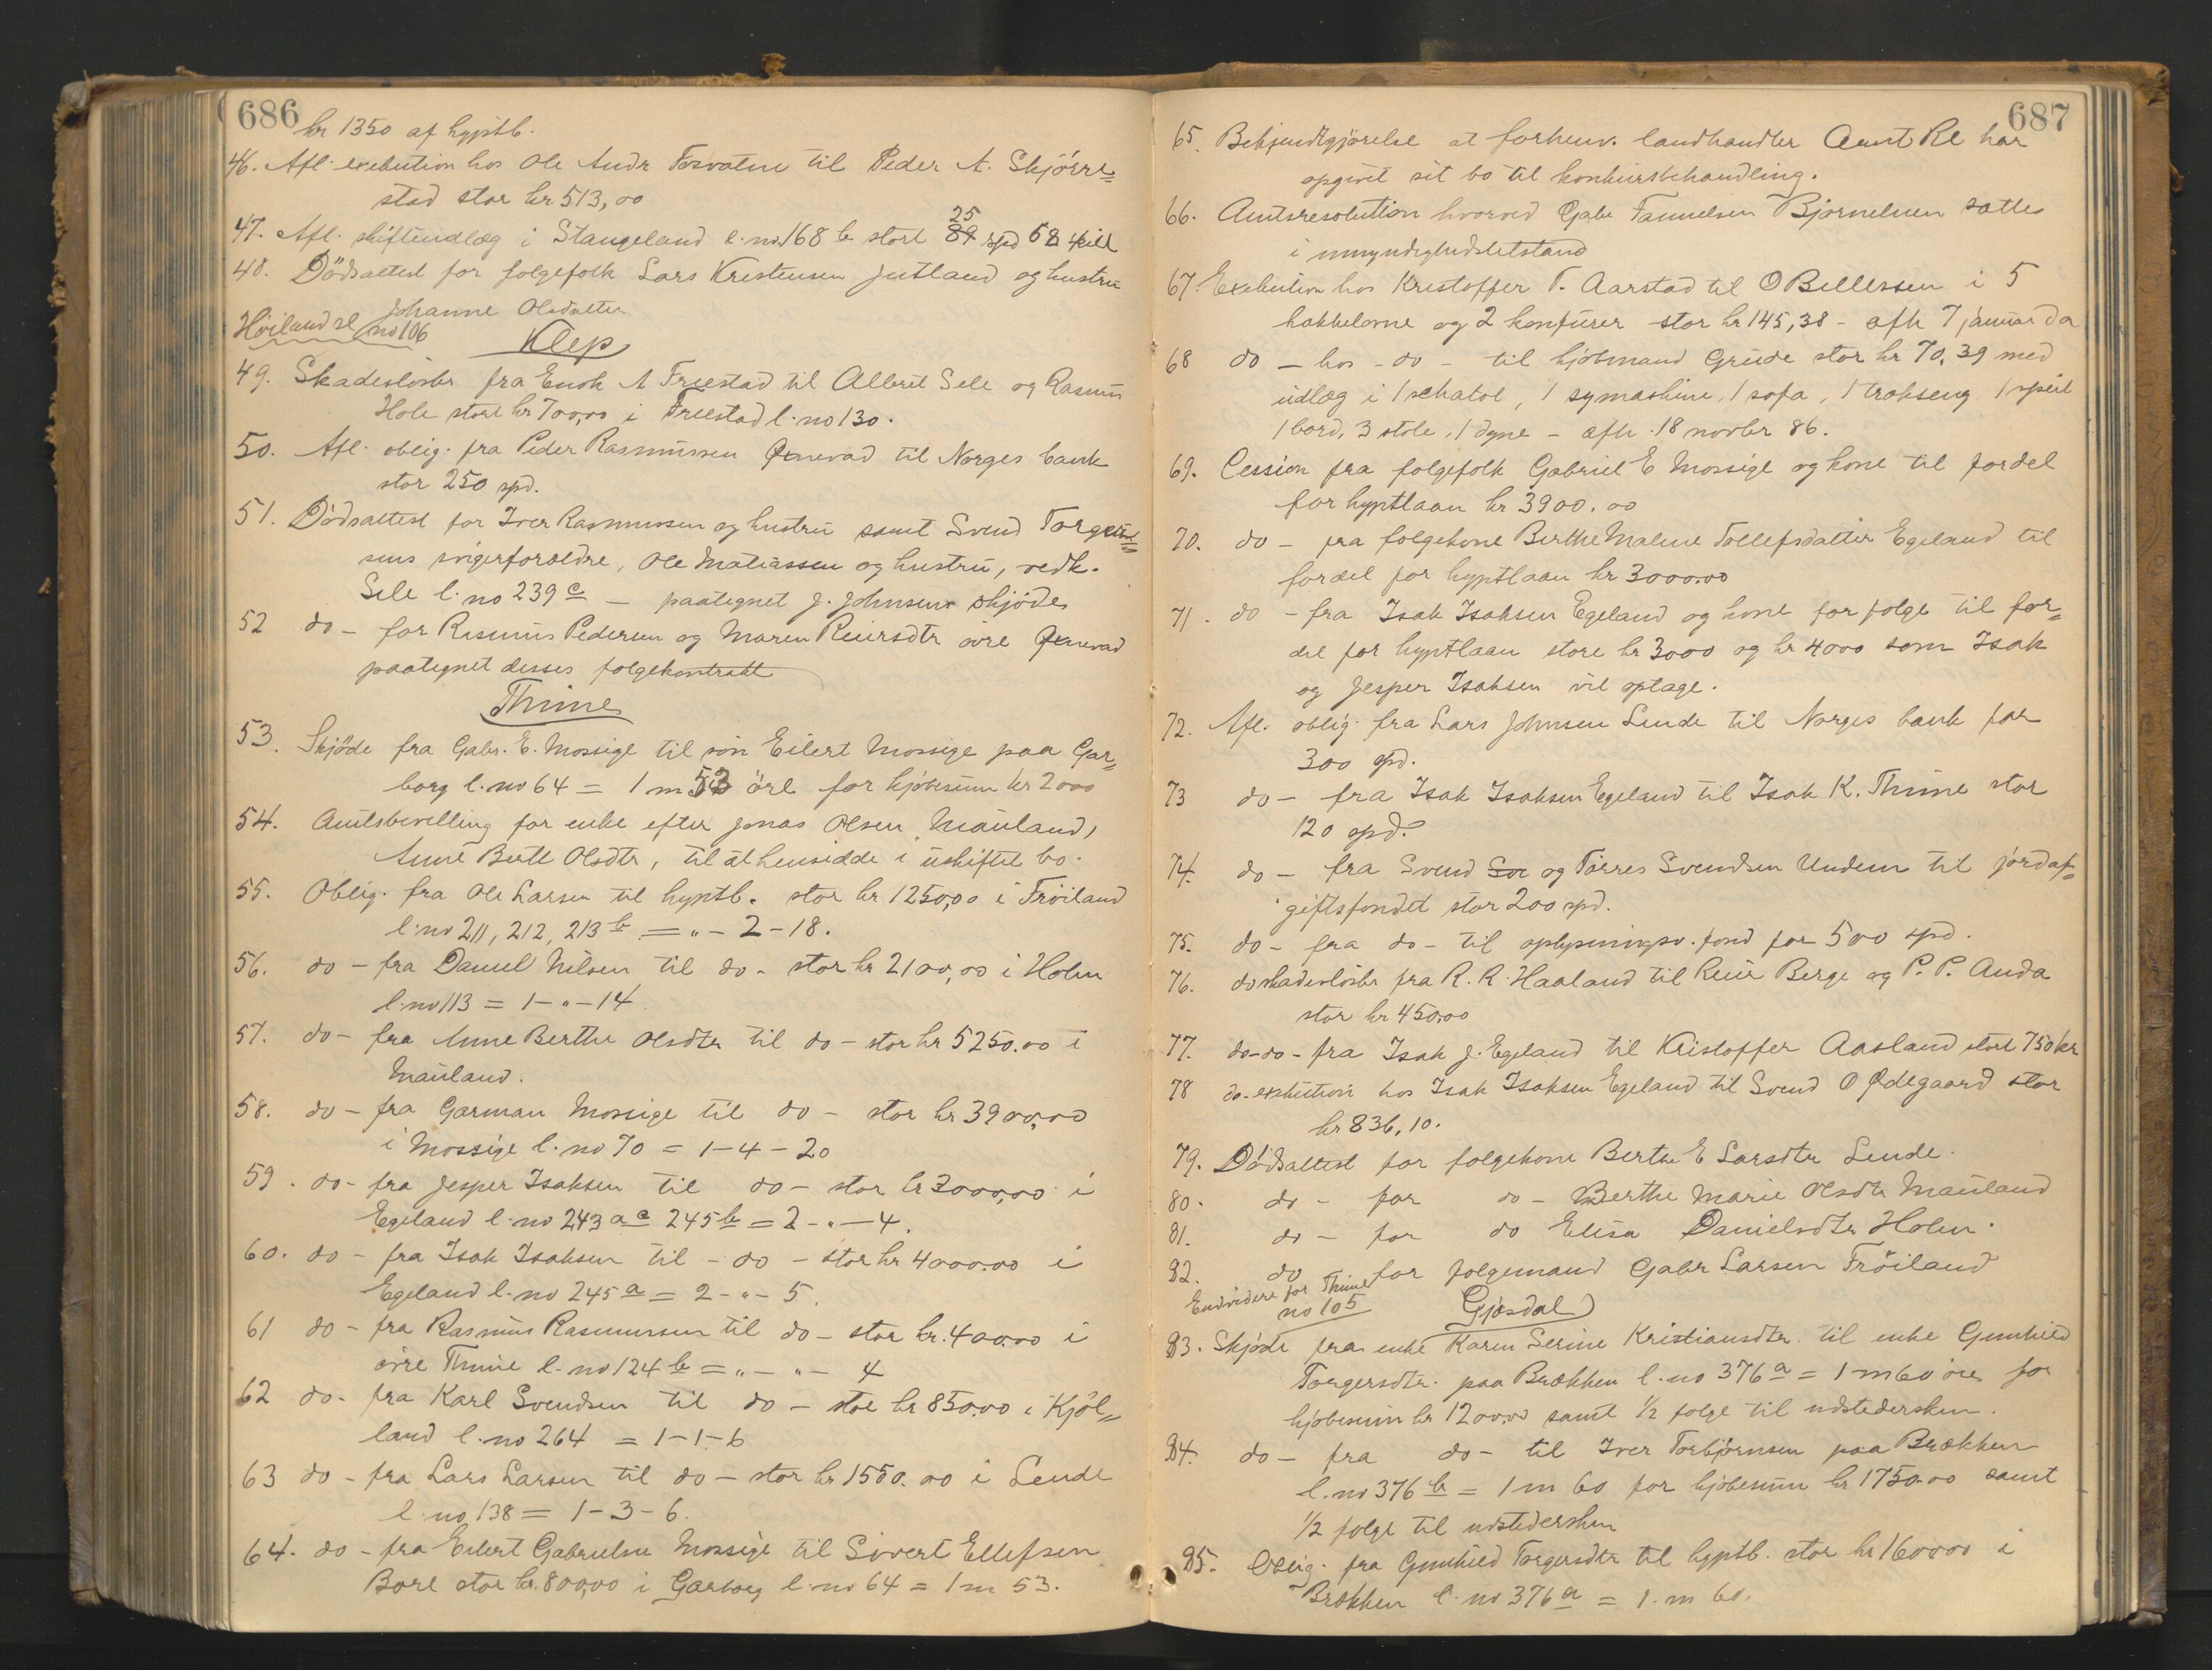 686
kr 1350 af hyptb.
46. Afl. exekution hos Ole Andr Fosvatne til Peder A. Skjörre=
stad stor kr 513,00
47. Afl. skifteudlæg i Stangeland l. no. 168 b stort 25 spd 58 skill
48. Dödsattest for folgefolk Lars Kristensen Jutland og hustru
Johanne Olsdatter
Höiland se no 106
Klep
49. Skadeslösbr fra Enok A Friestad til Albret Sele og Rasmus
Hole stort kr 700,00 i Friestad l. no 130.
50. Afl. oblig. fra Peder Rasmussen Qvernevad til Norges bank
stor 250 spd.
51. Dödsattest for Iver Rasmussen og hustru samt Svend Torger=
sens svigerforældre, Ole Matiassen og hustru, vedk.
Sele l. no 239 c — paategnet J. Johnsens skjöde
52 do — for Rasmus Pedersen og Maren Reiersdtr övre Qvernevad
paategnet desses folgekontrakt
Thime
53. Skjöde fra Gabr. E. Mossige til sön Eilert Mossige paa Gar=
borg l. no 64 = 1 m 53 öre for kjöbesum kr 2000
54. Amtsbevilling for enke efter Jonas Olsen Mauland,
Anne Berte Olsdtr, til at hensidde i uskiftet bo.
55. Oblig. fra Ole Larsen til hyptb. stor kr 1250,00 i Fröiland
l. no 211, 212, 213 b = „ - 2 - 18.
56. do — fra Daniel Nilsen til do - stor kr 2100,00 i Holen
l. no 113 = 1 - „ - 14
57. do - fra Anne Berthe Olsdtr til do - stor kr 5250.00 i
Mauland.
58. do - fra Garman Mossige til do - stor kr 3900,00
i Mossige l. no 70 = 1 - 4 - 20
59. do - fra Jesper Isaksen til do - stor kr 3000,00 i
Egeland l. no 243 a c 245 b = 2 - „ - 4.
60. do - fra Isak Isaksen til - do - stor kr 4000.00 i
Egeland l. no 245 a = 2 - „ - 5.
61 do - fra Rasmus Rasmussen til do - stor kr. 400.00 i
övre Thime l. no 124 b = „ - „ - 4
62 do - fra Karl Svendsen til do - stor kr 850.00 i Kjöl=
land l. no 264 = 1-1-6
63 do - fra Lars Larsen til do - stor kr 1550.00 i Lende
l. no 138 = 1-3-6.
64. do - fra Eilert Gabrielsen Mossige til Sivert Ellefsen
Bore stor kr. 800,00 i Garborg l. no 64 = 1 m 53.
687
65. Bekjendtgjörelse at forhenv. landhandler Aamt Re har
opgivet sit bo til konkursbehandling.
66. Amtsresolution hvorved Gabr Samuelsen Bjornelien sattes
i umyndighedstilstand
67. Exekution hos Kristoffer T. Aarstad til O Bellessen i 5
kakkelovne og 2 komfurer stor kr 145,38 - afh 7 januar da
68 do — hos - do - til kjöbmand Grude stor kr 70,39 med
udlæg i 1 schatol, 1 symaskine, 1 sofa, 1 trækseng 1 speil
1 bord, 3 stole, 1 dyne - afh. 18 novbr 86.
69. Cession fra folgefolk Gabriel E Mossige og kone til fordel
for hyptlaan kr 3900.00
70. do - fra folgekone Berthe Malene Tollefsdatter Egeland til
fordel for hyptlaan kr 3000.00
71. do - fra Isak Isaksen Egeland og kone for folge til for=
del for hyptlaan store kr 3000 og kr 4000 som Isak
og Jesper Isaksen vil optage.
72. Afl. oblig. fra Lars Johnsen Lende til Norges bank for
300 spd.
73 do - fra Isak Isaksen Egeland til Isak K. Thime stor
120 spd.
74. do - fra Svend Sor og Törres Svendsen Undem til jordaf=
giftsfondet stor 200 spd.
75. do - fra do - til oplysningsv. fond for 500 spd.
76. do skadeslösbr fra R. R. Haaland til Reier Berge og P. P. Anda
stor kr 450,00
77. do-do- fra Isak J. Egeland til Kristoffer Aasland stort 750 kr
78 do - exekution hos Isak Isaksen Egeland til Svend O Ödegaard stor
kr 836,10.
79. Dödsattest for folgekone Berthe E Larsdtr Lende.
80. do - for do - Berthe Marie Olsdtr Mauland
81. do - for do Elisa Danielsdtr Holen.
82. do for folgemand Gabr Larsen Fröiland
Endvidere for Thime no 105
Gjesdal
83. Skjöde fra enke Karen Serine Kristiansdtr til enke Gunhild
Torgersdtr. paa Brækken l. no 376 a = 1 m 60 öre for
kjöbesum kr 1200.00 samt 1/2 folge til udstedersken.
84. do - fra do - til Iver Torbjörnsen paa Brækken
l. no 376 b = 1 m 60 for kjöbesum kr 1750.00 samt
1/2 folge til udstedersken
85. Oblig. fra Gunhild Torgersdtr til hyptb. stor kr 1600.00 i
Brækken l. no 376 a = 1. m 60.